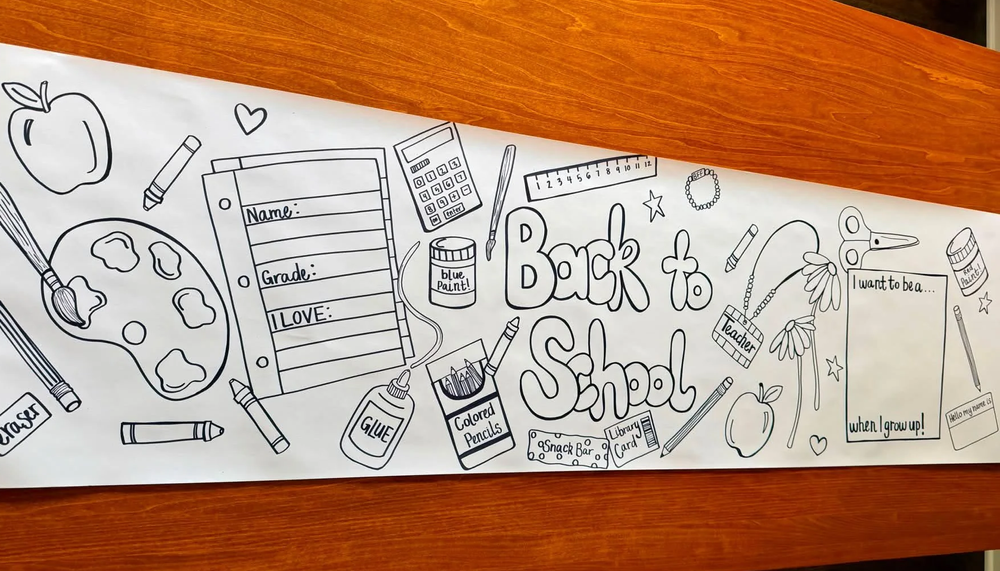 Name:
Grade:
I LOVE:
eraser
GLUE
blue
Paint!
Colored
Pencils
enter
1 2 3 4 5 6 7 8 9 10 11 12
BFF
Back to
School
Snack Bar
Library
Card
Teacher
I want to be a...
when I grow up!
red
Paint!
Hello my name is